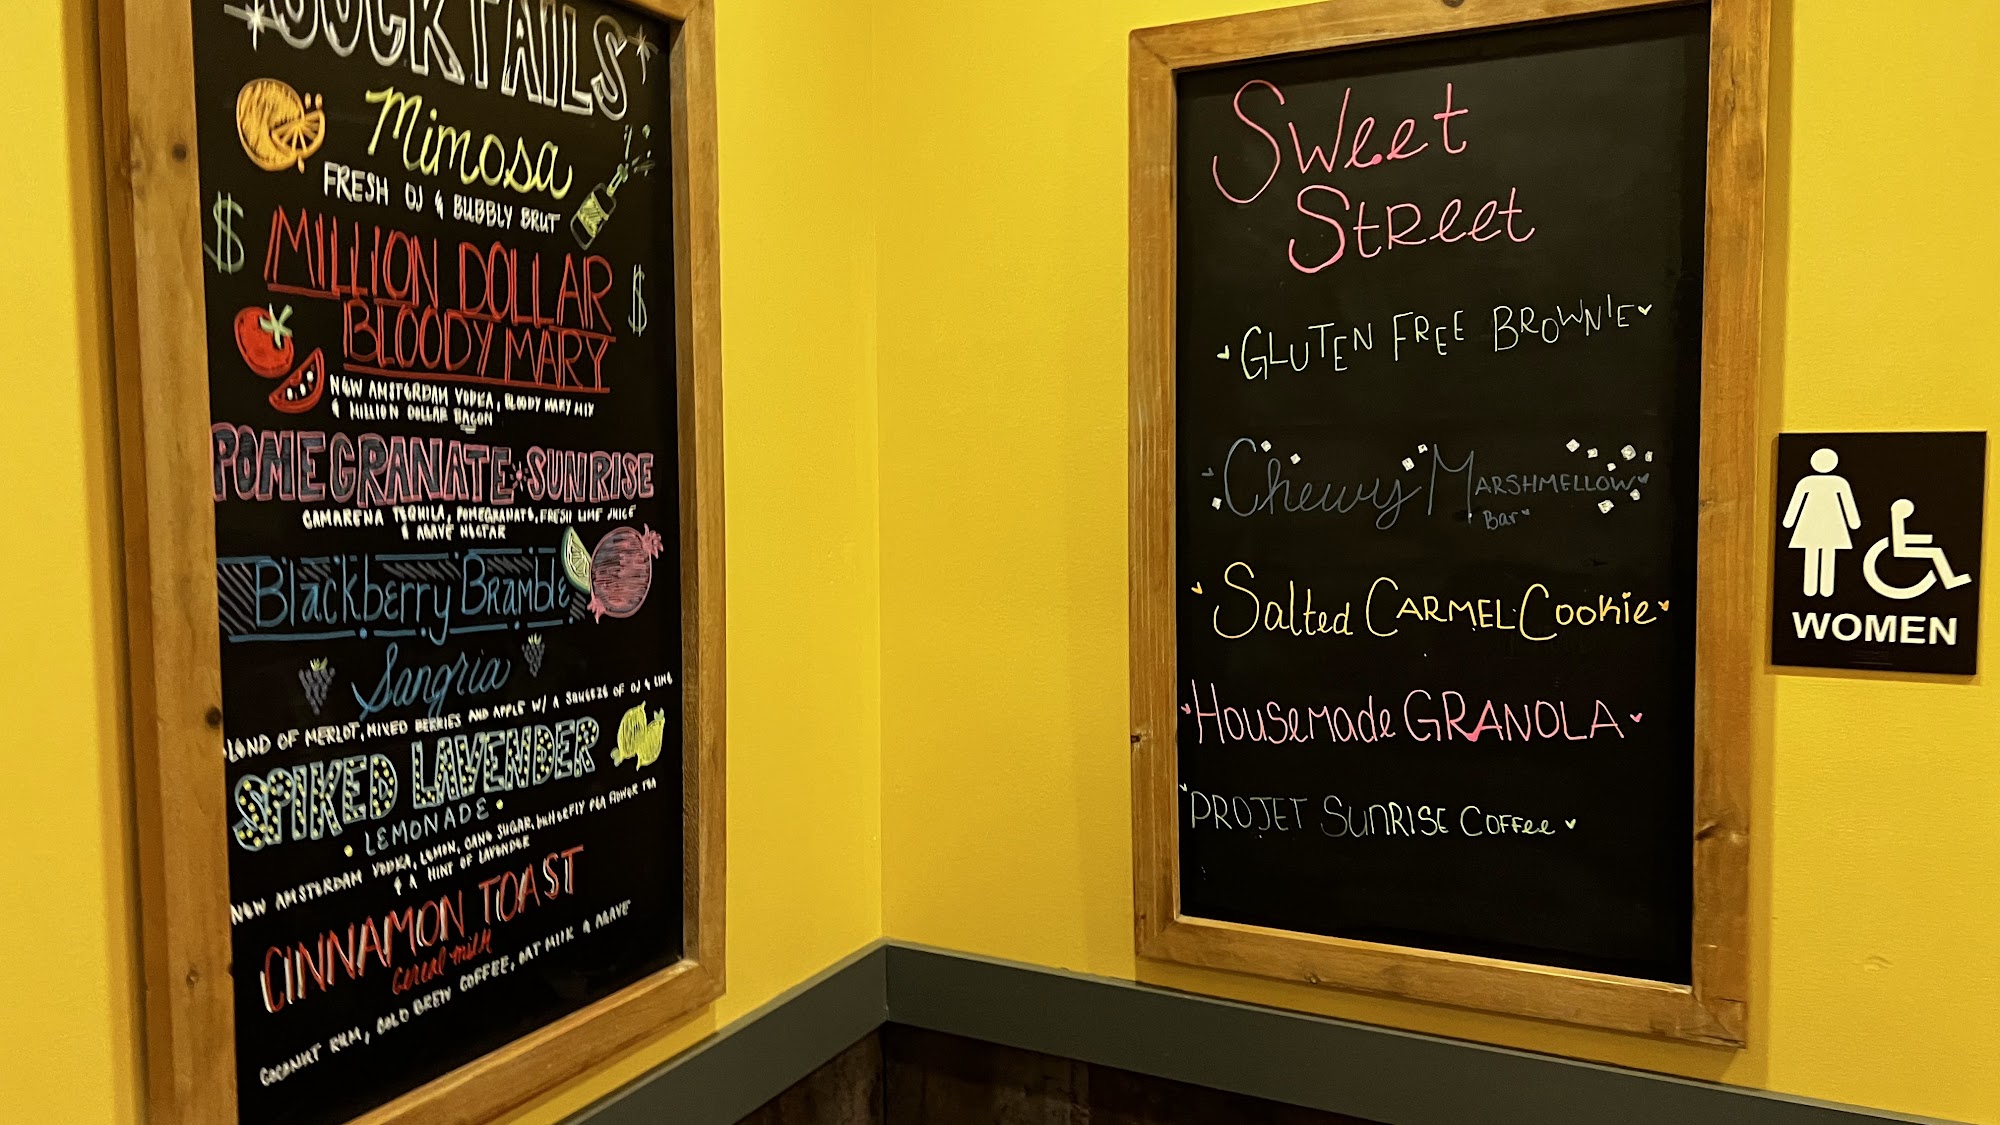 COCKTAILS
Mimosa
FRESH OJ & BUBBLY BRUT
$ MILLION DOLLAR $
BLOODY MARY
NEW AMSTERDAM VODKA, BLOODY MARY MIX
& MILLION DOLLAR BACON
POMEGRANATE SUNRISE
CAMARENA TEQUILA, POMEGRANATE, FRESH LIME JUICE
& AGAVE NECTAR
Blackberry Bramble
Sangria
BLEND OF MERLOT, MIXED BERRIES AND APPLE W/ A SQUEEZE OF OJ & LIME
SPIKED LAVENDER
LEMONADE
NEW AMSTERDAM VODKA, LEMON, CANE SUGAR, BUTTERFLY PEA FLOWER TEA
& A HINT OF LAVENDER
CINNAMON TOAST
cereal milk
COCONUT RUM, COLD BREW COFFEE, OAT MILK & AGAVE
Sweet
Street
GLUTEN FREE BROWNIE
Chewy MARSHMELLOW
Bar
Salted CARMEL Cookie
Housemade GRANOLA
PROJET SUNRISE COFFee
WOMEN